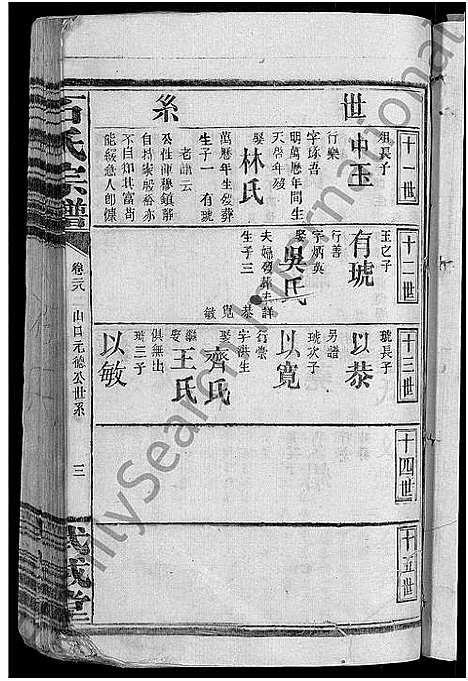 世系
十一世
祖長子
中玉
行樂
字琢吾
明萬曆年間生
天常年歿
娶
林氏
萬曆年生歿葬
生子一 有琥
老譜云
公性渾穆鎮靜
自持家殷裕亦
不自知其富尚
能緩急人卽傾
十二世
玉之子
有琥
行善
字炳奐
娶
吳氏
夫婦歿葬未詳
生子三 恭 寬 敏
十三世
琥長子
以恭
另譜
琥次子
以寬
行崇
字洪生
娶
齊氏
繼娶
王氏
俱無出
琥三子
以敏
十四世
十五世
石氏宗譜
卷三八
山口元德公世系
三
FamilySearch International